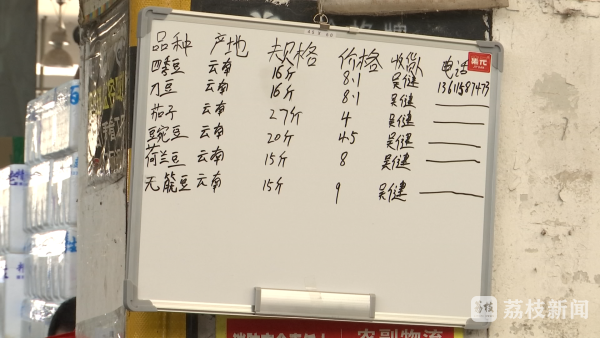 品种 产地 规格 价格 收款 电话
四季豆 云南 16斤 8.1 吴健 13611587473
刀豆 云南 16斤 8.1 吴健
茄子 云南 27斤 4 吴健
豆豌豆 云南 20斤 4.5 吴健
荷兰豆 云南 15斤 8 吴健
无能豆 云南 15斤 9 吴健
农副物流
荔枝新闻